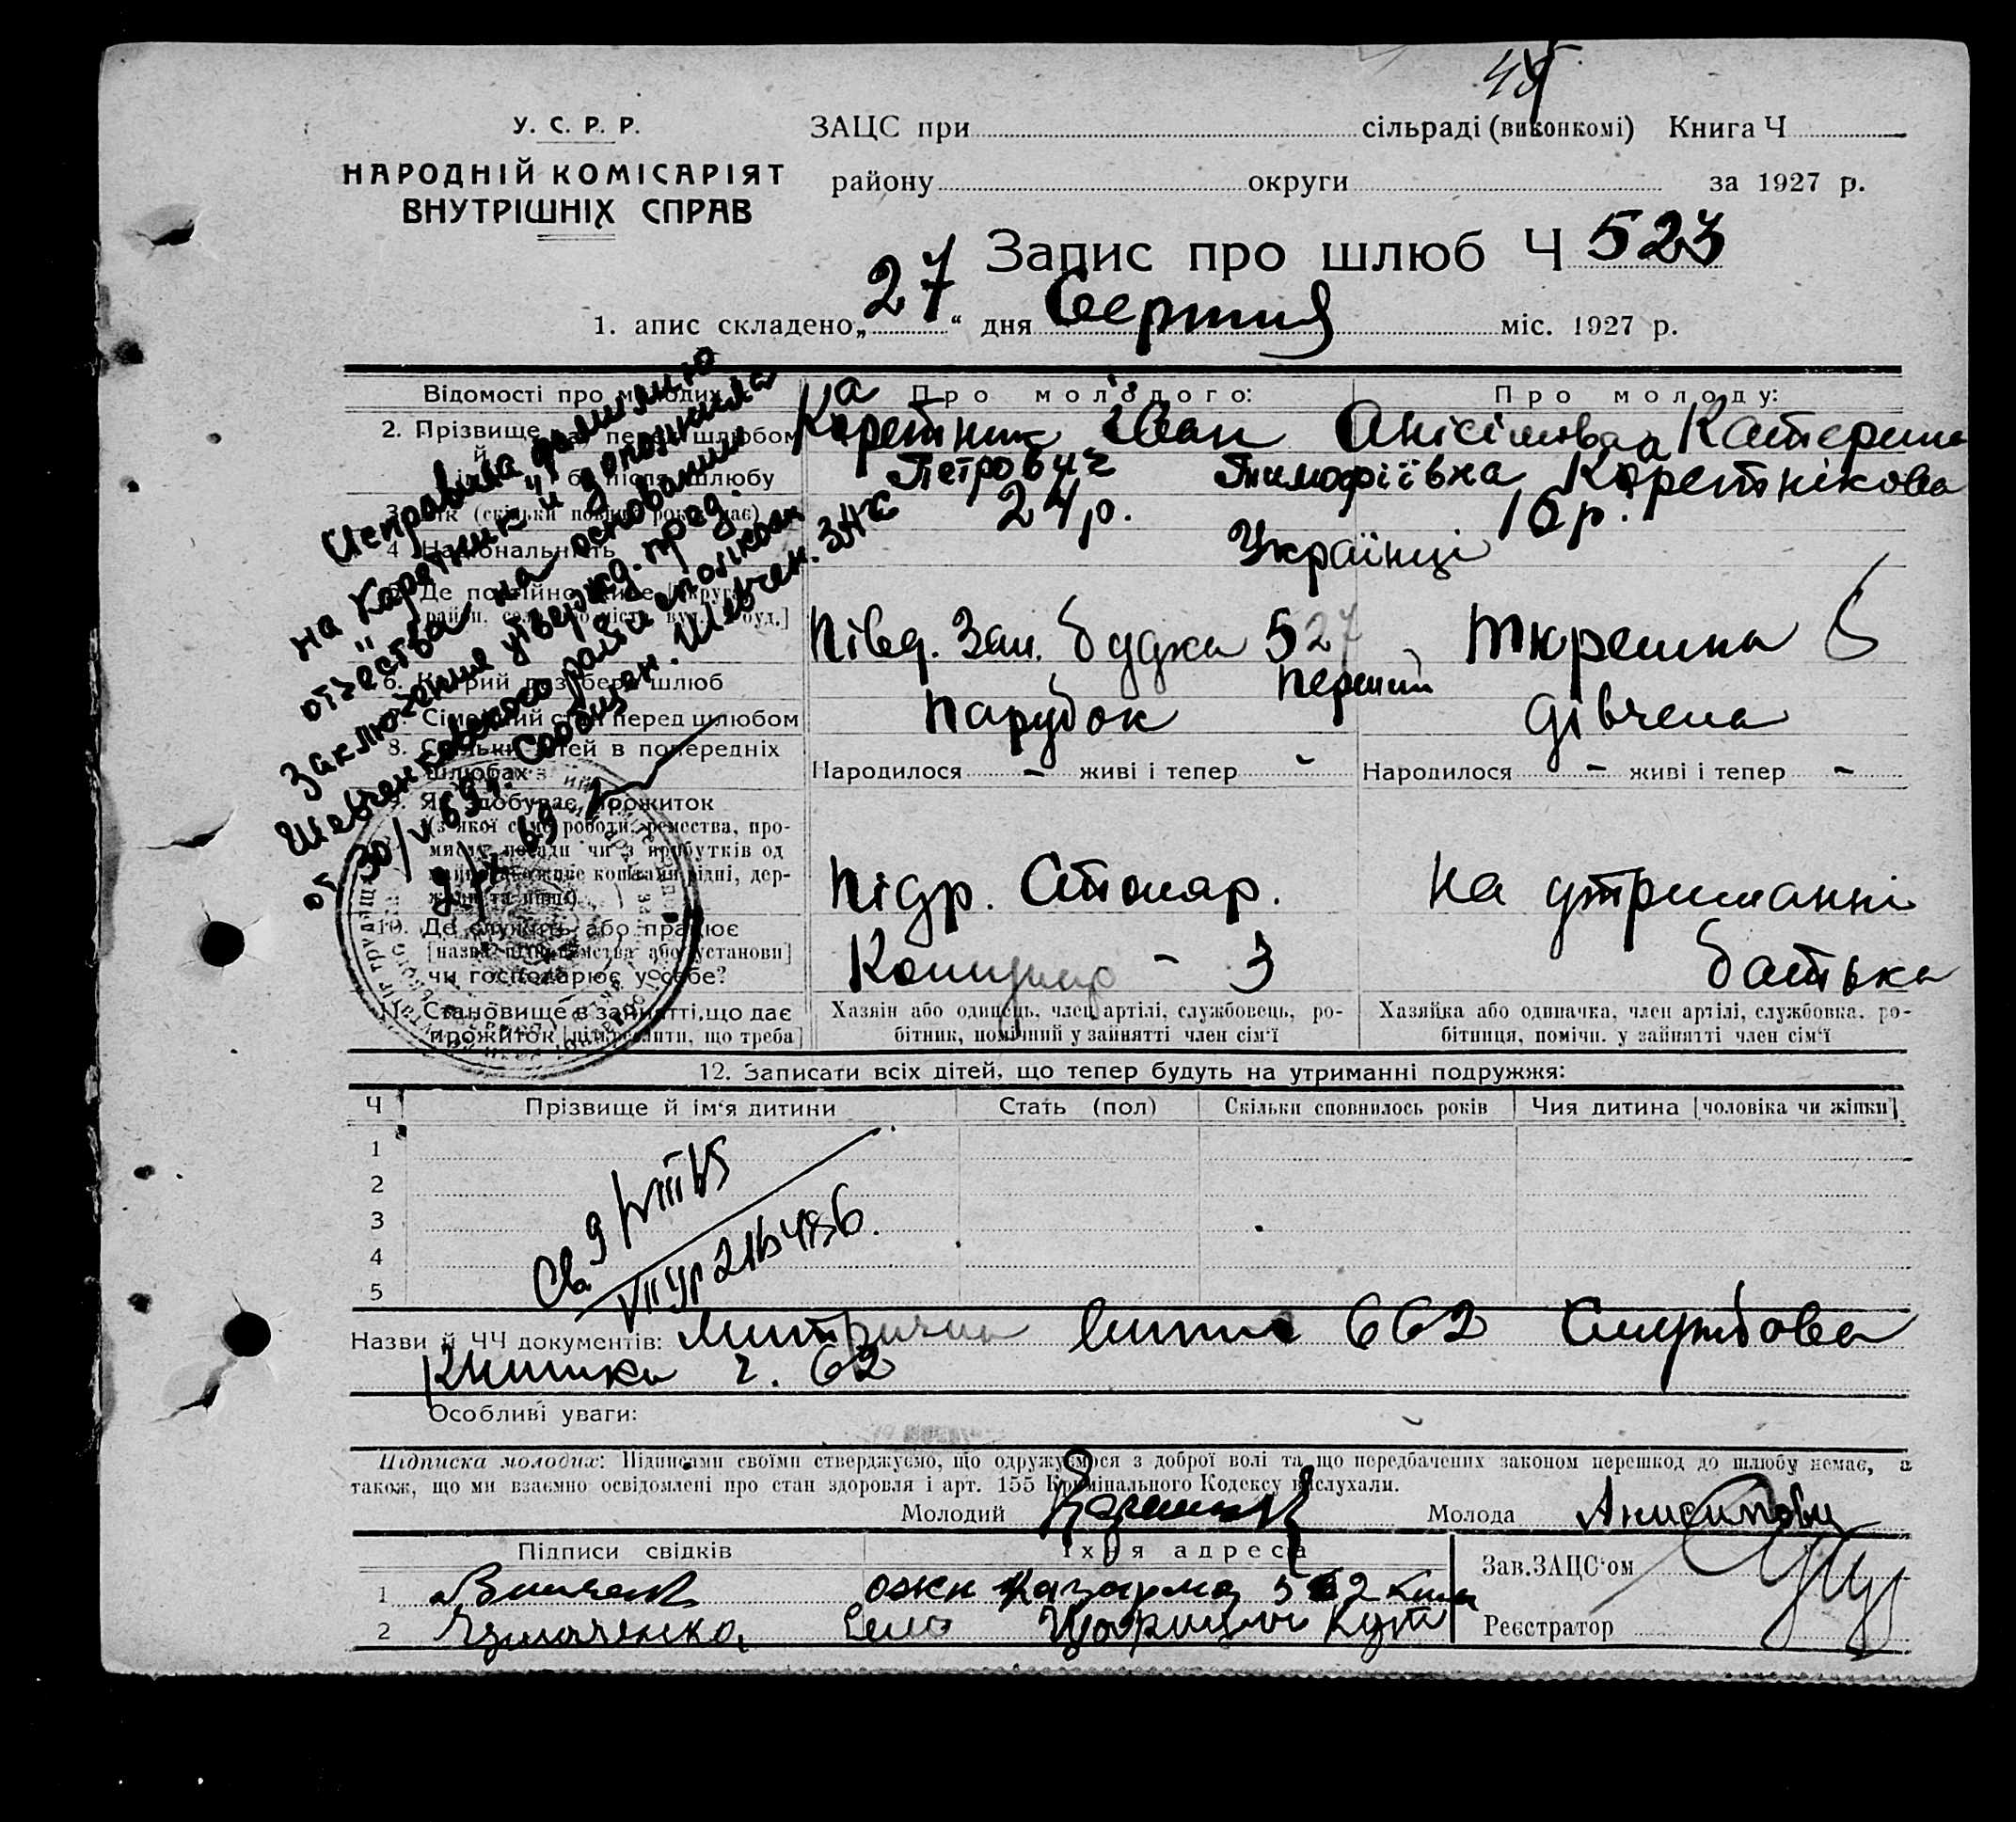 У. С. Р. Р.
НАРОДНІЙ КОМІСАРІЯТ
ВНУТРІШНІХ СПРАВ
ЗАЦС при сільраді (виконкомі) Книга Ч
району округи за 1927 р.
Запис про шлюб Ч 523
1. апис складено „27“ дня Серпня міс. 1927 р.
Исправлена фамилию
на „Каретник“ и дополнила
отчества на основании
Заключения утвержд. пред.
Шевченковского райисполкома
от 30/V 69 г. Сообщен. Шевчен. ЗАГС
Відомості про молодих
Про молодого:
Про молоду:
2. Прізвище й перед шлюбом
Каретник Іван
Анісімова Катерина
б) після шлюбу
Петрович
Тимофіївна Каретнікова
3. Вік (скільки повних років має)
24 р.
16 р.
4. Національність
Українці
5. Де постійно живе [округа, район, село або місто, вул., буд.]
Півд. Зал. будка 527
6. Котрий раз бере шлюб
Перший
7. Сімейний стан перед шлюбом
Парубок
дівчена
8. Скільки дітей в попередніх шлюбах
Народилося – живі і тепер –
Народилося – живі і тепер –
9. Як здобуває прожиток
(з якої саме роботи, ремества, про-
мислу, посади чи з прибутків од
Підр. Столяр.
На утриманні
10. Де служить або працює
[назва підприємства або установи]
чи господарює у себе?
батька
11. Становище в занятті, що дає
прожиток [підкреслити, що треба]
Хазяїн або одинець, член артілі, службовець, ро-
бітник, помічний у занятті член сім‘ї
Хазяйка або одиначка, член артілі, службовка, ро-
бітниця, помічн. у занятті член сім‘ї
12. Записати всіх дітей, що тепер будуть на утриманні подружжя:
Ч Прізвище й ім‘я дитини Стать (пол) Скільки сповнилось років Чия дитина [чоловіка чи жінки]
1
2
3
4
5
Назви й ЧЧ документів: Митрична випис 662 Службова
Книжка ч. 62
Особливі уваги:
Підписка молодих: Підписами своїми стверджуємо, що одружуємося з доброї волі та що передбачених законом перешкод до шлюбу немає, а
також, що ми взаємно освідомлені про стан здоровля і арт. 155 Кримінального Кодексу вислухали.
Молодий
Молода Анисимова
Підписи свідків
Їхня адреса
Зав. ЗАЦС‘ом
1 казарма
2 Село Царицин Кут
Реєстратор